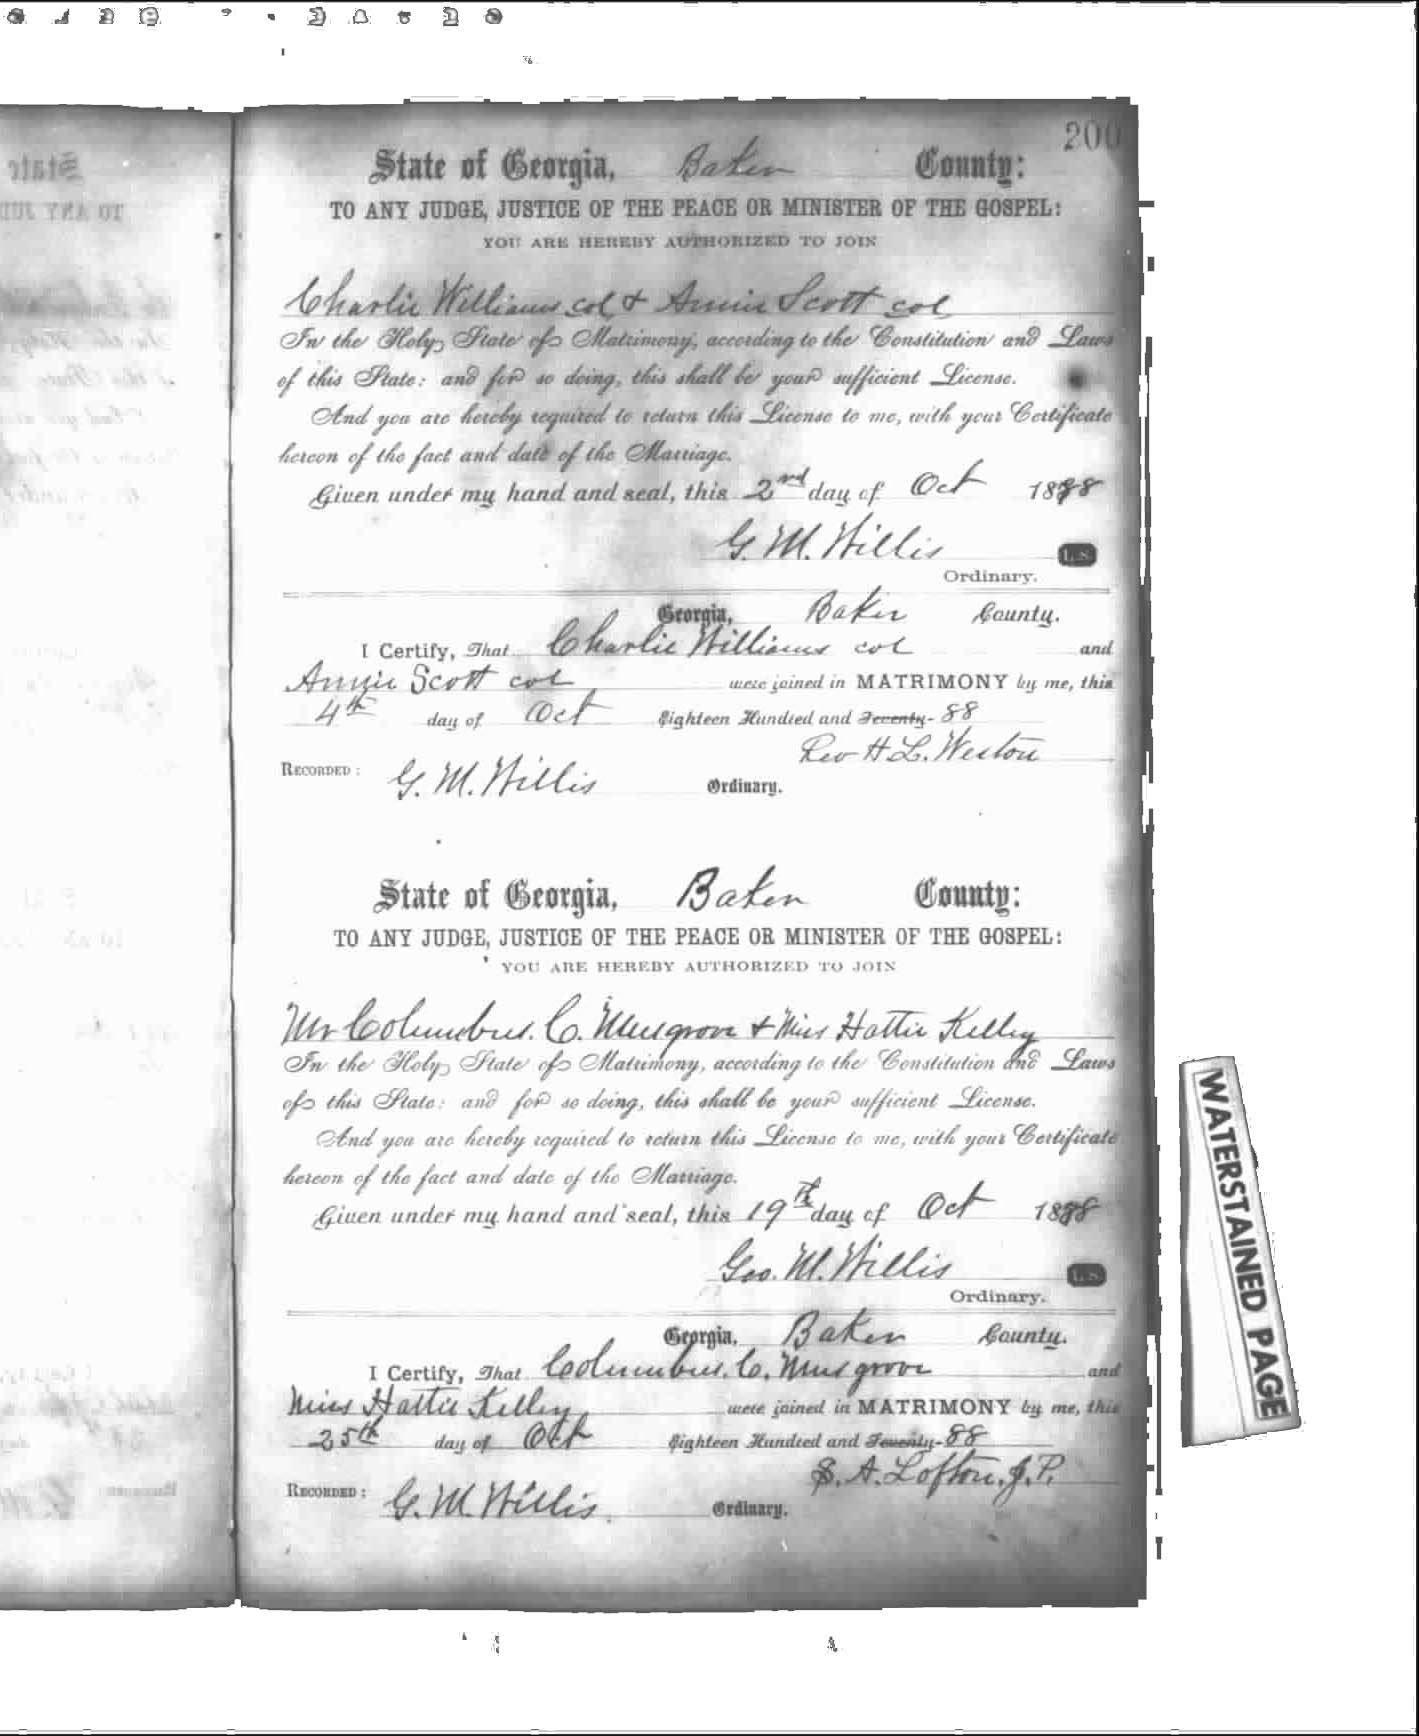 200
State of Georgia, Baker County:
TO ANY JUDGE, JUSTICE OF THE PEACE OR MINISTER OF THE GOSPEL:
YOU ARE HEREBY AUTHORIZED TO JOIN
Charlie Williams col & Annie Scott col
In the Holy State of Matrimony, according to the Constitution and Laws
of this State: and for so doing, this shall be your sufficient License.
And you are hereby required to return this License to me, with your Certificate
hereon of the fact and date of the Marriage.
Given under my hand and seal, this 2nd day of Oct 1888
G. M. Willis L.S.
Ordinary.
Georgia, Baker County.
I Certify, That Charlie Williams col and
Annie Scott col were joined in MATRIMONY by me, this
4th day of Oct Eighteen Hundred and Seventy- 88
Rev H. L. Weston
RECORDED: G. M. Willis Ordinary.
State of Georgia, Baker County:
TO ANY JUDGE, JUSTICE OF THE PEACE OR MINISTER OF THE GOSPEL:
YOU ARE HEREBY AUTHORIZED TO JOIN
Mr Columbus. C. Musgrove & Miss Hattie Kelley
In the Holy State of Matrimony, according to the Constitution and Laws
of this State: and for so doing, this shall be your sufficient License.
And you are hereby required to return this License to me, with your Certificate
hereon of the fact and date of the Marriage.
Given under my hand and seal, this 19th day of Oct 1888
Geo. M. Willis L.S.
Ordinary.
Georgia, Baker County.
I Certify, That Columbus. C. Musgrove and
Miss Hattie Kelley were joined in MATRIMONY by me, this
25th day of Oct Eighteen Hundred and Seventy- 88
S. A. Lofton, J. P.
RECORDED: G. M. Willis. Ordinary.
WATERSTAINED PAGE